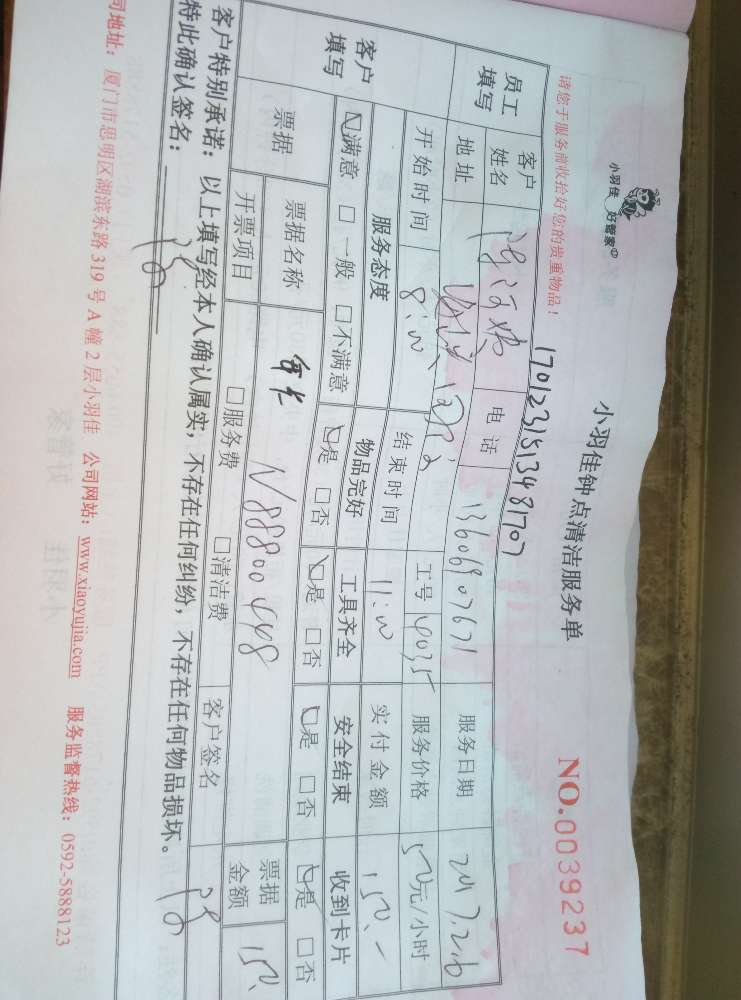 小羽佳 好管家
小羽佳钟点清洁服务单
NO.0039237
请您于服务前收拾好您的贵重物品！
1701231513481707
员工填写 客户姓名 电话 13606907671 服务日期 2017.2.6
地址 工号 服务价格 50元/小时
开始时间 8:00 结束时间 11:00 实付金额 150.-
客户填写 服务态度 物品完好 工具齐全 安全结束 收到卡片
满意 □一般 □不满意 是 □否 是 □否 是 □否 是 □否
票据 票据名称 N88800448 票据金额 150.
开票项目 □服务费 □清洁费 客户签名
客户特别承诺：以上填写经本人确认属实，不存在任何纠纷，不存在任何物品损坏。
特此确认签名：
司地址：厦门市思明区湖滨东路319号A幢2层小羽佳 公司网站：www.xiaoyujia.com 服务监督热线：0592-5888123